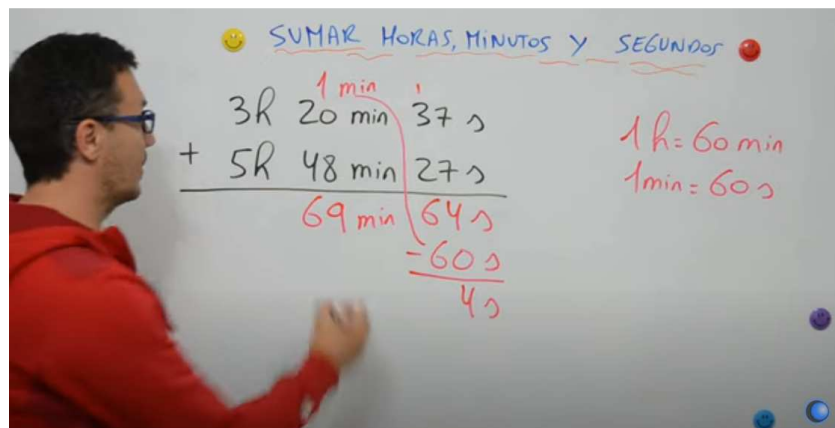 SUMAR HORAS, MINUTOS Y SEGUNDOS
1 min 1
3h 20 min 37 s
+ 5h 48 min 27 s
69 min 64 s
- 60 s
4 s
1 h = 60 min
1 min = 60 s